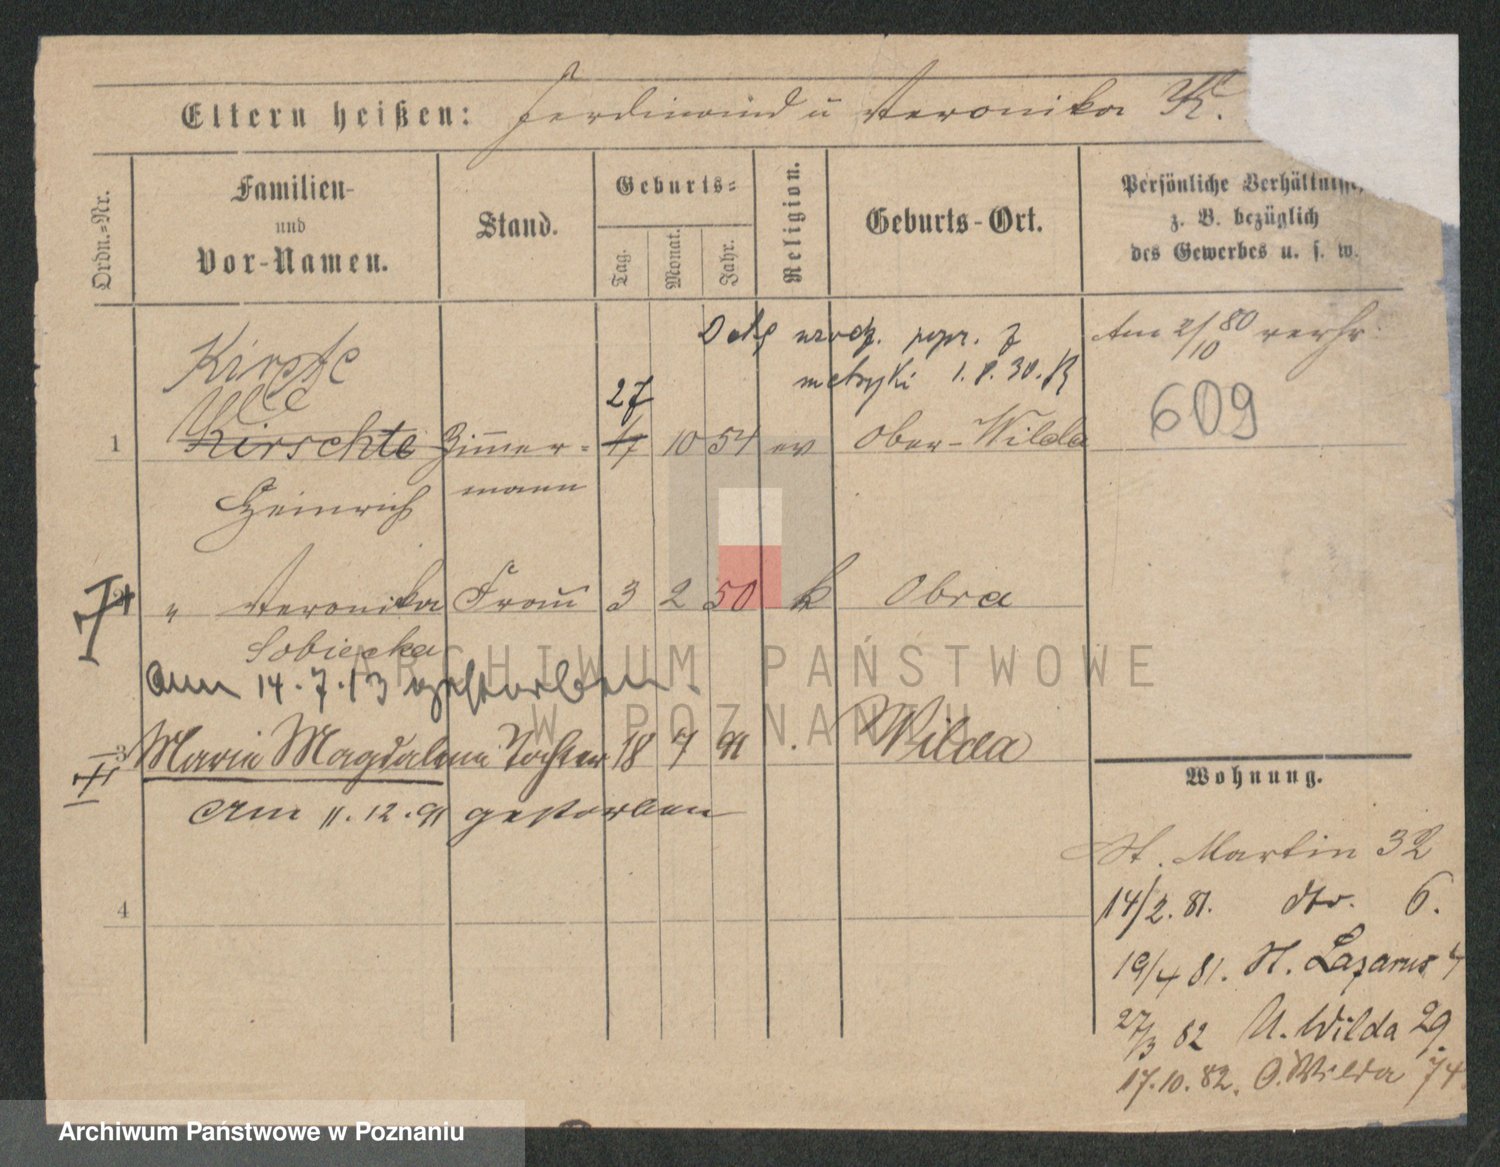 Eltern heißen: Ferdinand u Veronika K.
Ordn.-Nr.
Familien-
und
Vor-Namen.
Stand.
Geburts-
Tag.
Monat.
Jahr.
Religion.
Geburts-Ort.
Persönliche Verhältnisse
z. B. bezüglich
des Gewerbes u. s. w.
urodz. popr. z
metryki 1.8.30.
Am 2/10 80 verhr.
609
Kirste
27
1 Kirschte Zimmer- 17 10 54 ev Ober-Wilda
mann
Heinrich
2 " Veronika Frau 3 2 50 k Obra
Sobiecka
am 14.7.13 gestorben.
3 Maria Magdalena Tochter 18 7 91 . Wilda
am 11.12.91 gestorben
4
Wohnung.
St. Martin 32
14/2. 81. dto. 6.
19/4 81. St. Lazarus 4
27/3 82 U. Wilda 29.
17.10.82. O. Wilda 74
ARCHIWUM PAŃSTWOWE
W POZNANIU
Archiwum Państwowe w Poznaniu